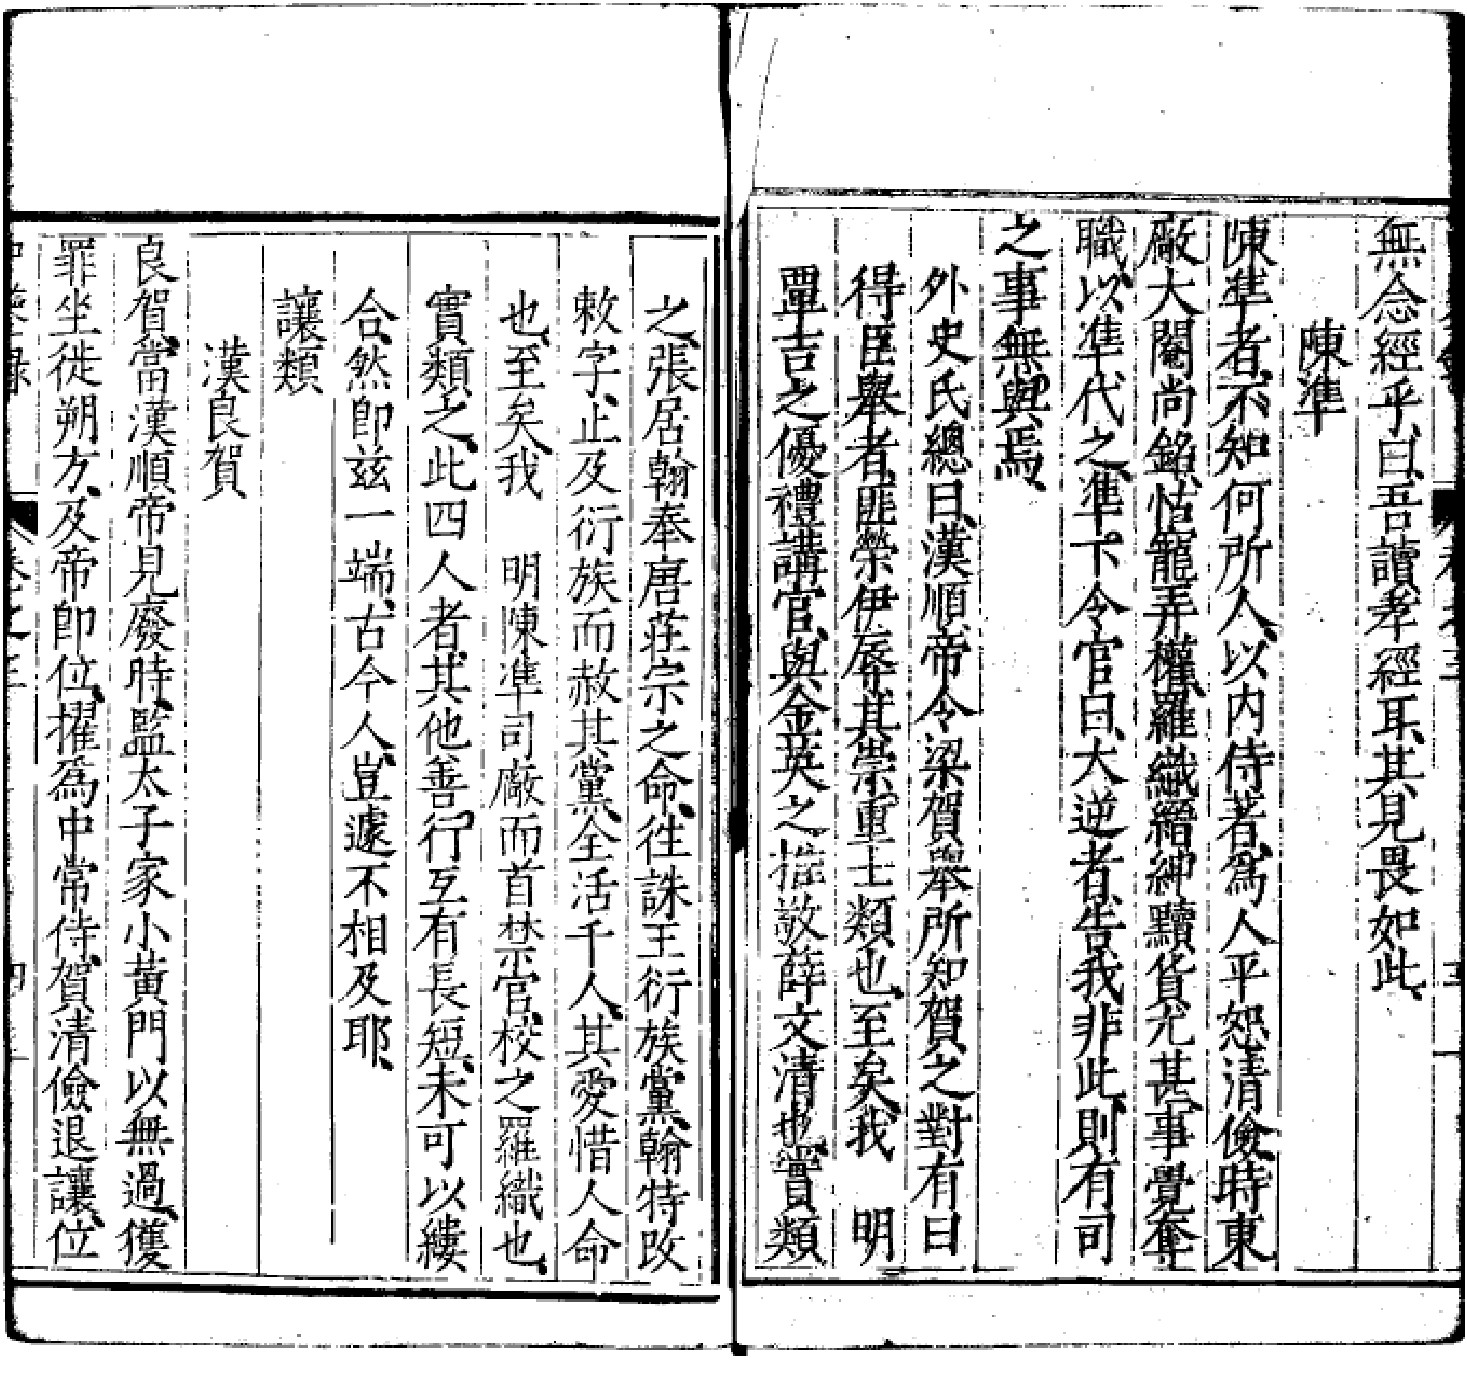 無念經乎曰吾讀孝經耳其見畏如此
陳準
陳準者不知何所人以内侍著為人平恕清儉時東
廠大閹尚銘怙寵弄權羅織縉紳黷貨尤甚事覺奪
職以準代之準下令官曰大逆者告我非此則有司
之事無與焉
外史氏總曰漢順帝令梁賀舉所知賀之對有曰
得臣舉者匪榮伊辱其崇重士類也至矣我　明
覃吉之優禮講官與金英之推敬薛文清也實類
之張居翰奉唐莊宗之命往誅王衍族黨翰特改
敕字止及衍族而赦其黨全活千人其愛惜人命
也至矣我　明陳準司廠而首禁官校之羅織也
實類之此四人者其他善行互有長短未可以縷
合然即茲一端古今人豈遽不相及耶
讓類
漢良賀
良賀當漢順帝見廢時監太子家小黃門以無過獲
罪坐徙朔方及帝即位擢為中常侍賀清儉退讓位